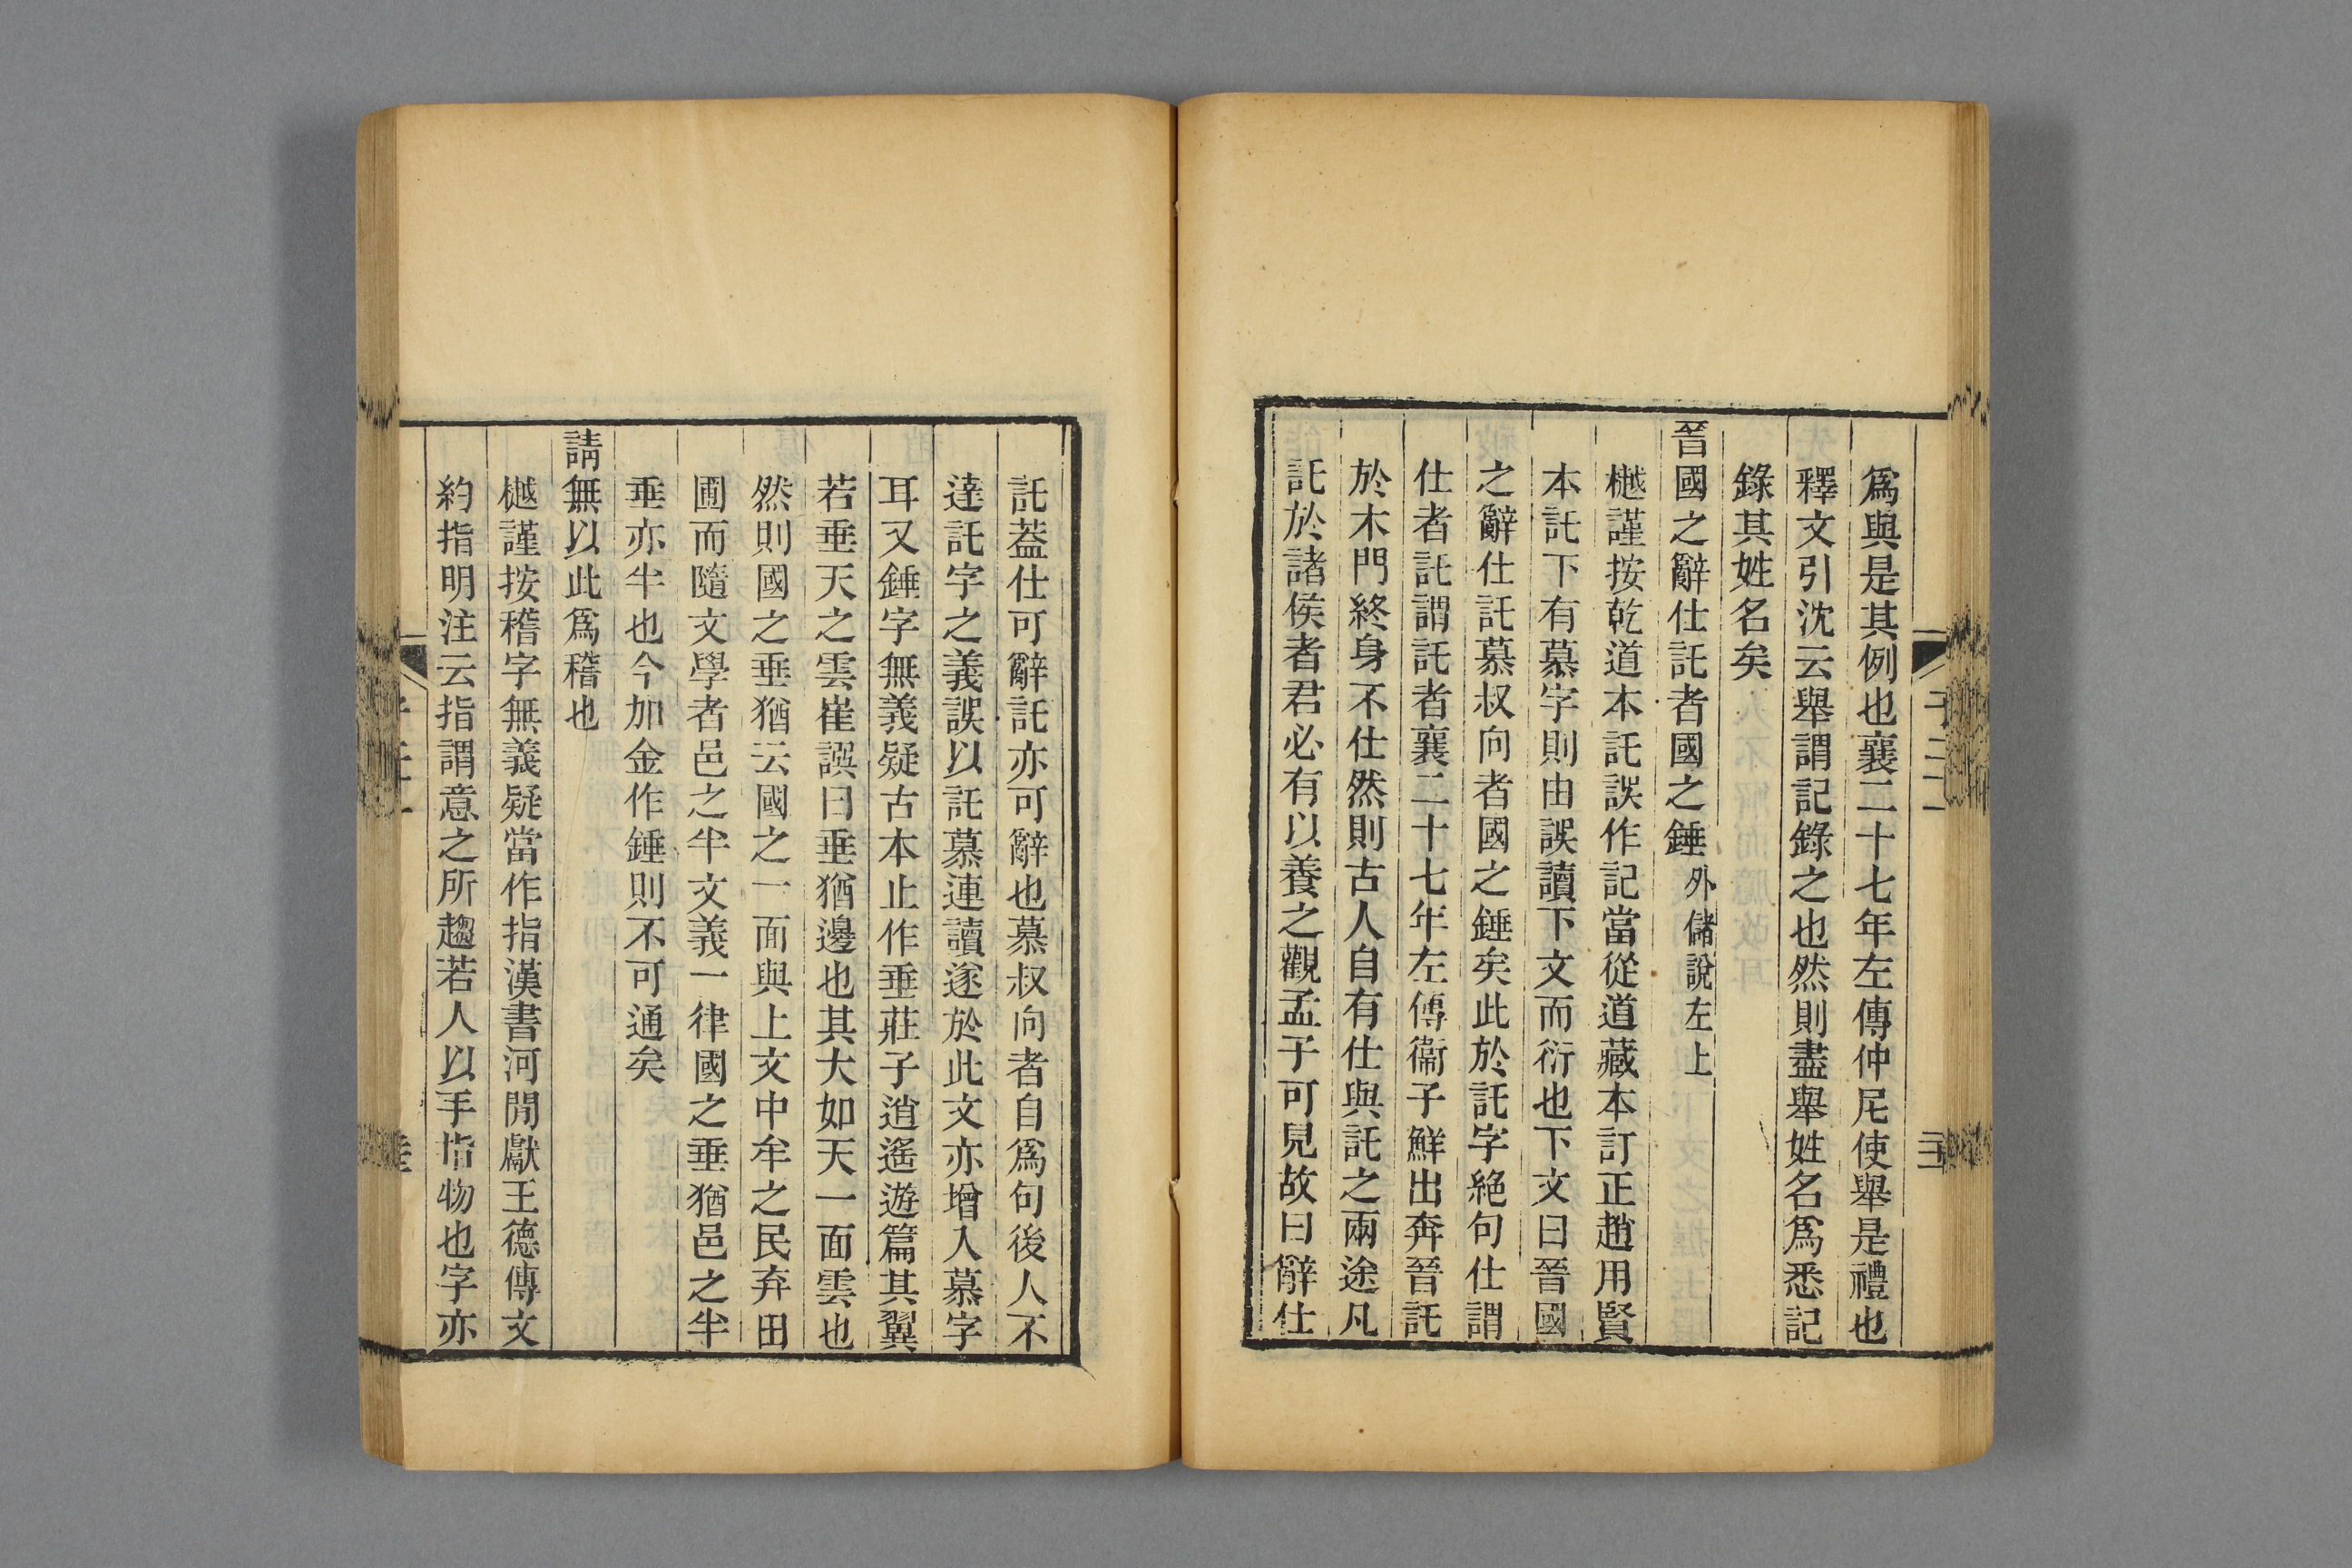 爲與是其例也襄二十七年左傳仲尼使舉是禮也
釋文引沈云舉謂記錄之也然則盡舉姓名爲悉記
錄其姓名矣
晉國之辭仕託者國之錘外儲說左上
樾謹按乾道本託誤作記當從道藏本訂正趙用賢
本託下有慕字則由誤讀下文而衍也下文曰晉國
之辭仕託慕叔向者國之錘矣此於託字絕句仕謂
仕者託謂託者襄二十七年左傳衞子鮮出奔晉託
於木門終身不仕然則古人自有仕與託之兩途凡
託於諸侯者君必有以養之觀孟子可見故曰辭仕
託蓋仕可辭託亦可辭也慕叔向者自爲句後人不
達託字之義誤以託慕連讀遂於此文亦增入慕字
耳又錘字無義疑古本止作垂莊子逍遙遊篇其翼
若垂天之雲崔譔曰垂猶邊也其大如天一面雲也
然則國之垂猶云國之一面與上文中牟之民弃田
圃而隨文學者邑之半文義一律國之垂猶邑之半
垂亦半也今加金作錘則不可通矣
請無以此爲稽也
樾謹按稽字無義疑當作指漢書河閒獻王德傳文
約指明注云指謂意之所趨若人以手指物也字亦